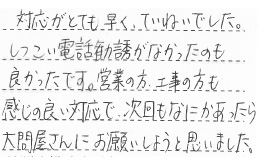 対応がとても早く、ていねいでした。
しつこい電話勧誘がなかったのも
良かったです。営業の方、工事の方も
感じの良い対応で、次回もなにかあったら
大問屋さんにお願いしようと思いました。